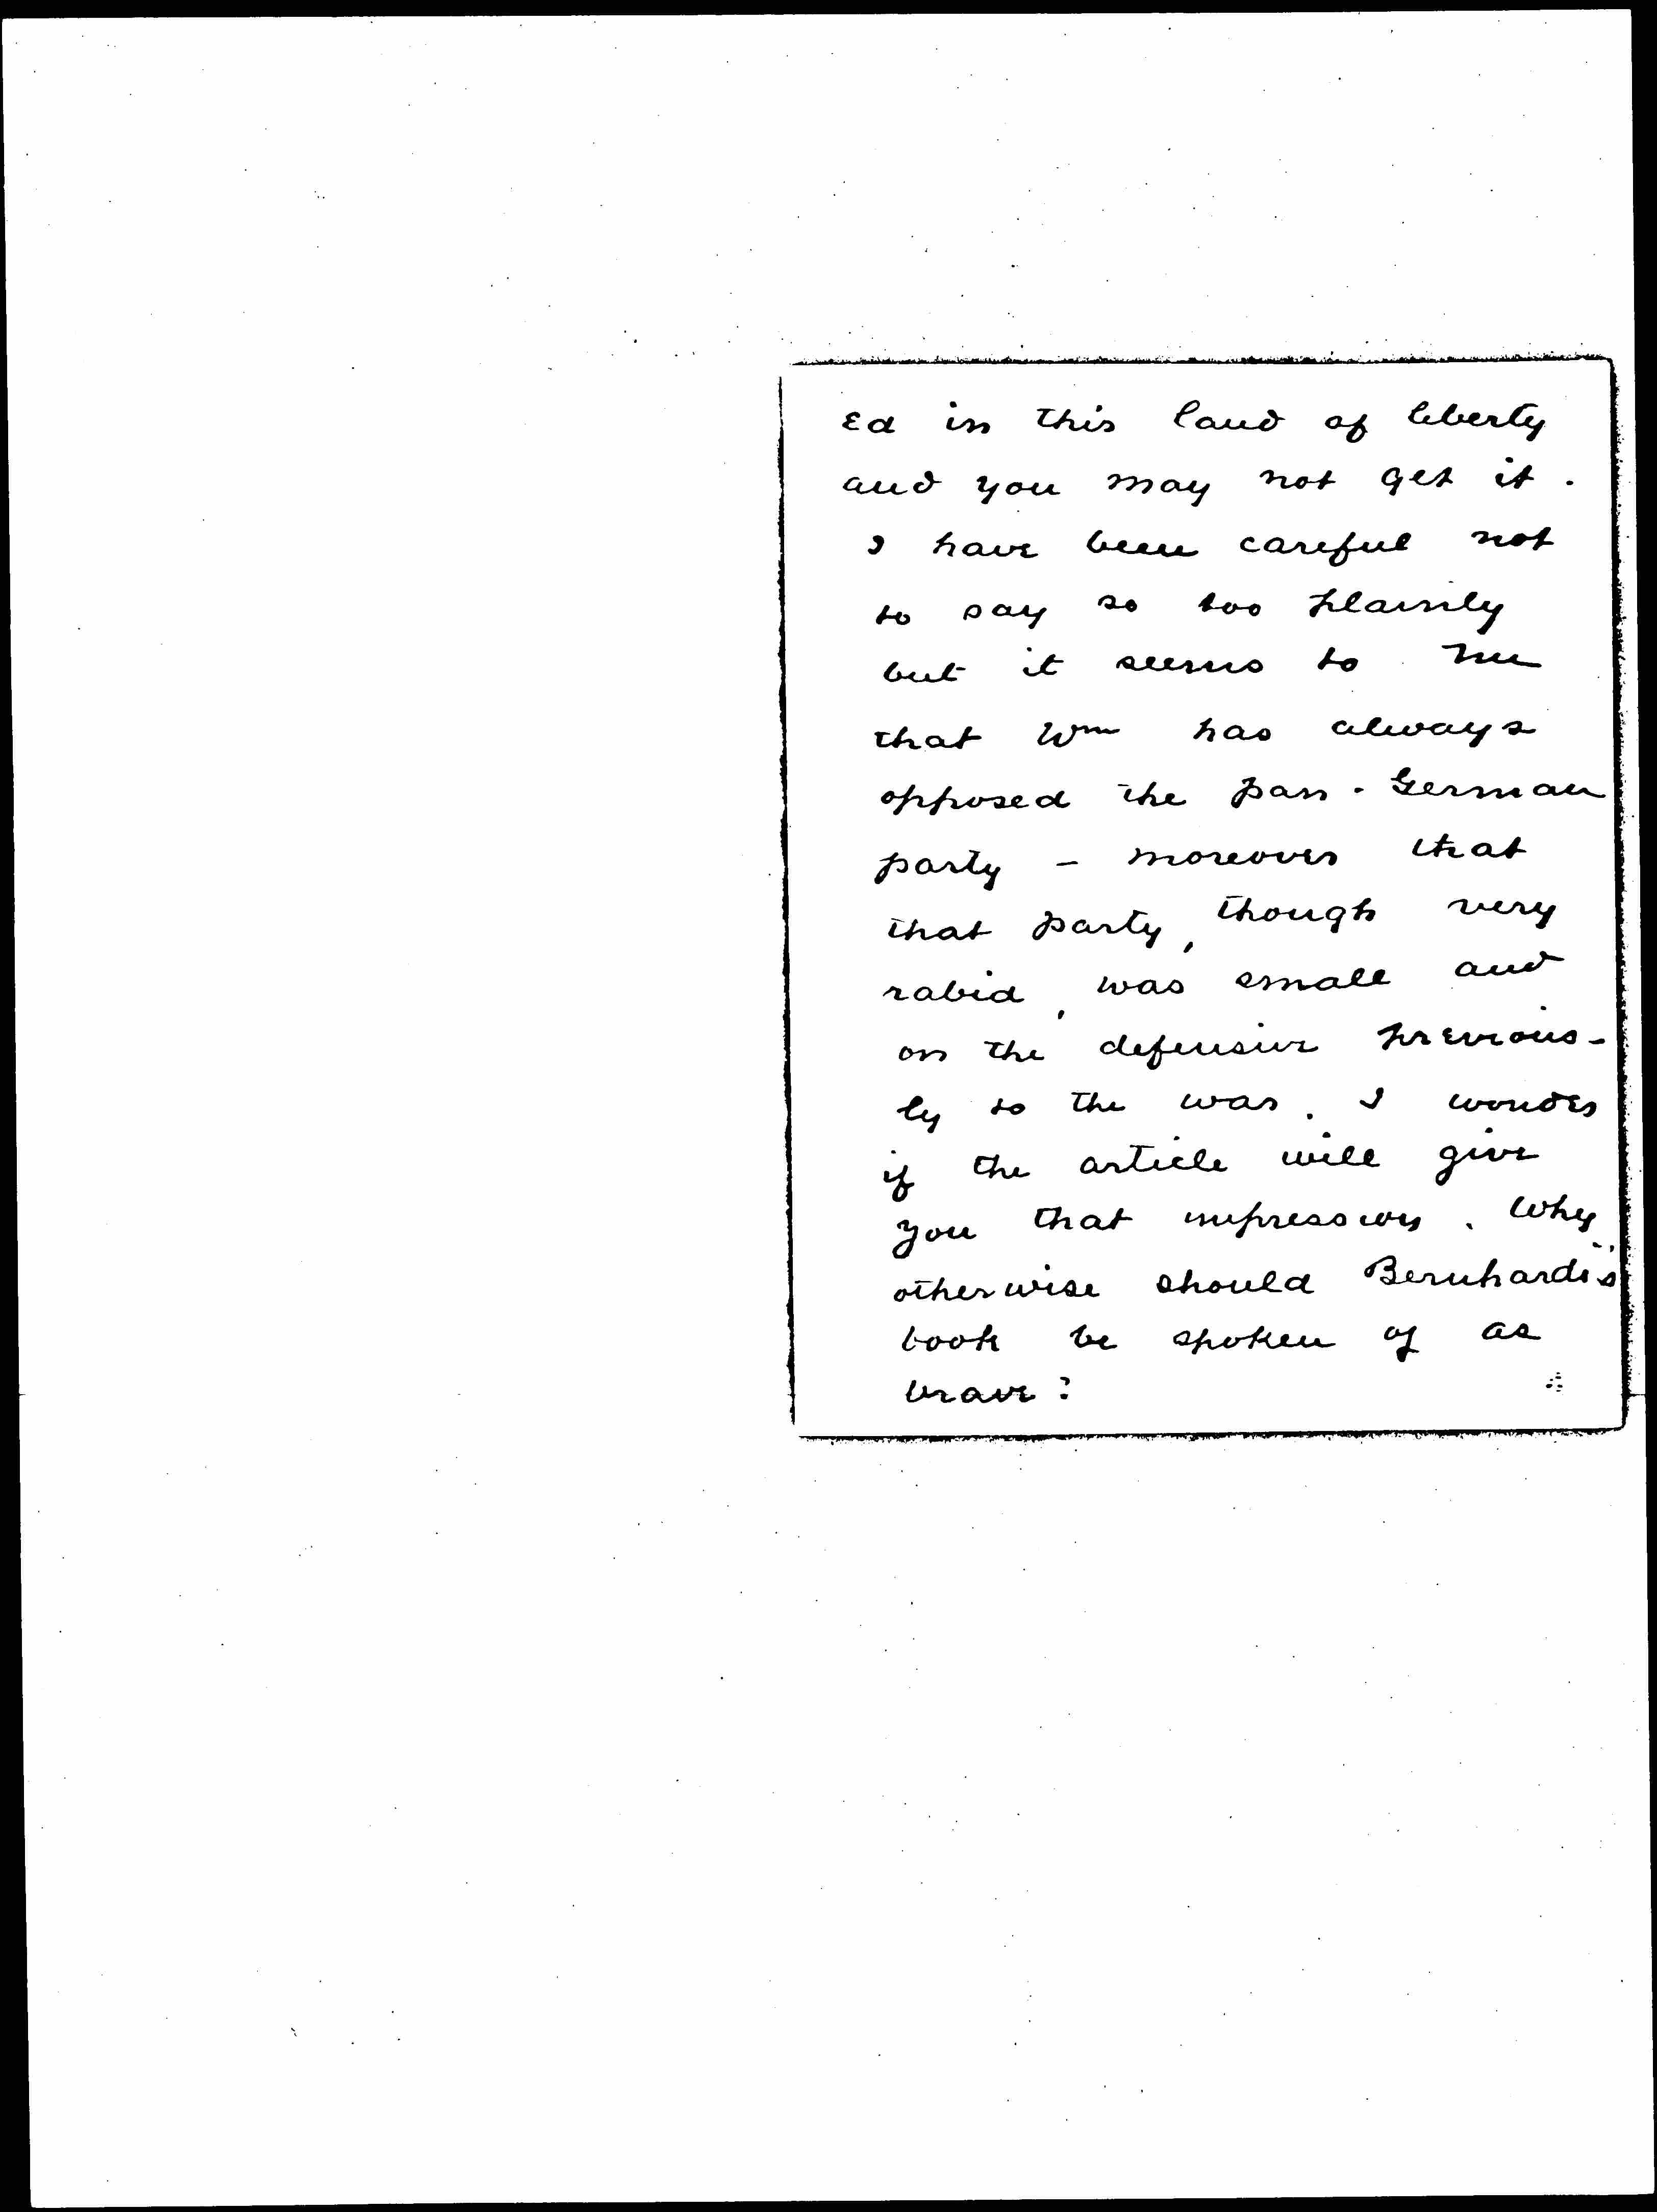 ed in this land of liberty
and you may not get it.
I have been careful not
to say so too plainly
but it seems to me
that Wm has always
opposed the pan-German
party - moreover that
that party, though very
rabid, was small and
on the defensive previous-
ly to the war. I wonder
if the article will give
you that impression. Why
otherwise should Bernhardi's
book be spoken of as
brave?